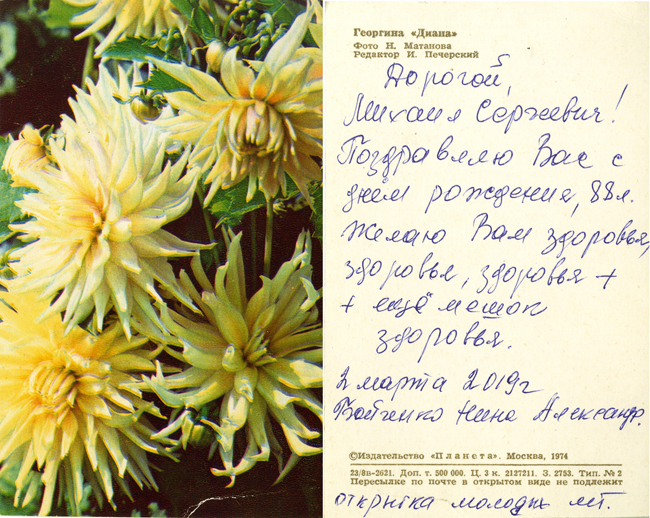 Георгина «Диана»
Фото Н. Матанова
Редактор И. Печерский
Дорогой,
Михаил Сергеевич!
Поздравляю Вас с
днём рождения, 88 л.
Желаю Вам здоровья,
здоровья, здоровья +
+ ещё мешок
здоровья.
2 марта 2019г
Бойченко Нина Александр.
©Издательство «Планета». Москва, 1974
23/8в-2621. Доп. т. 500 000. Ц. 3 к. 2127211. З. 2753. Тип. № 2
Пересылке по почте в открытом виде не подлежит
открытка молодых лет.